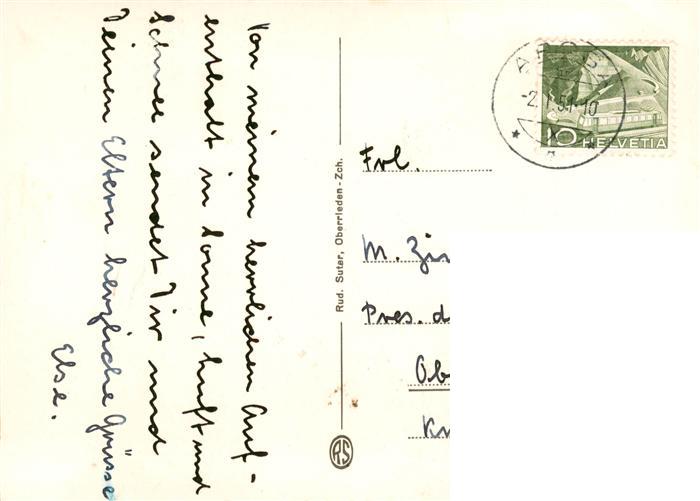 Von meinem herrlichen Auf-
enthalt in Sonne, Luft und
Schnee sendet Dir und
Deinen Eltern herzliche Grüsse
Else.
Rud. Suter, Oberrieden - Zch.
RS
AROSA
-2. 51-10
10 HELVETIA
Frl.
M.
Pres. d
Ob